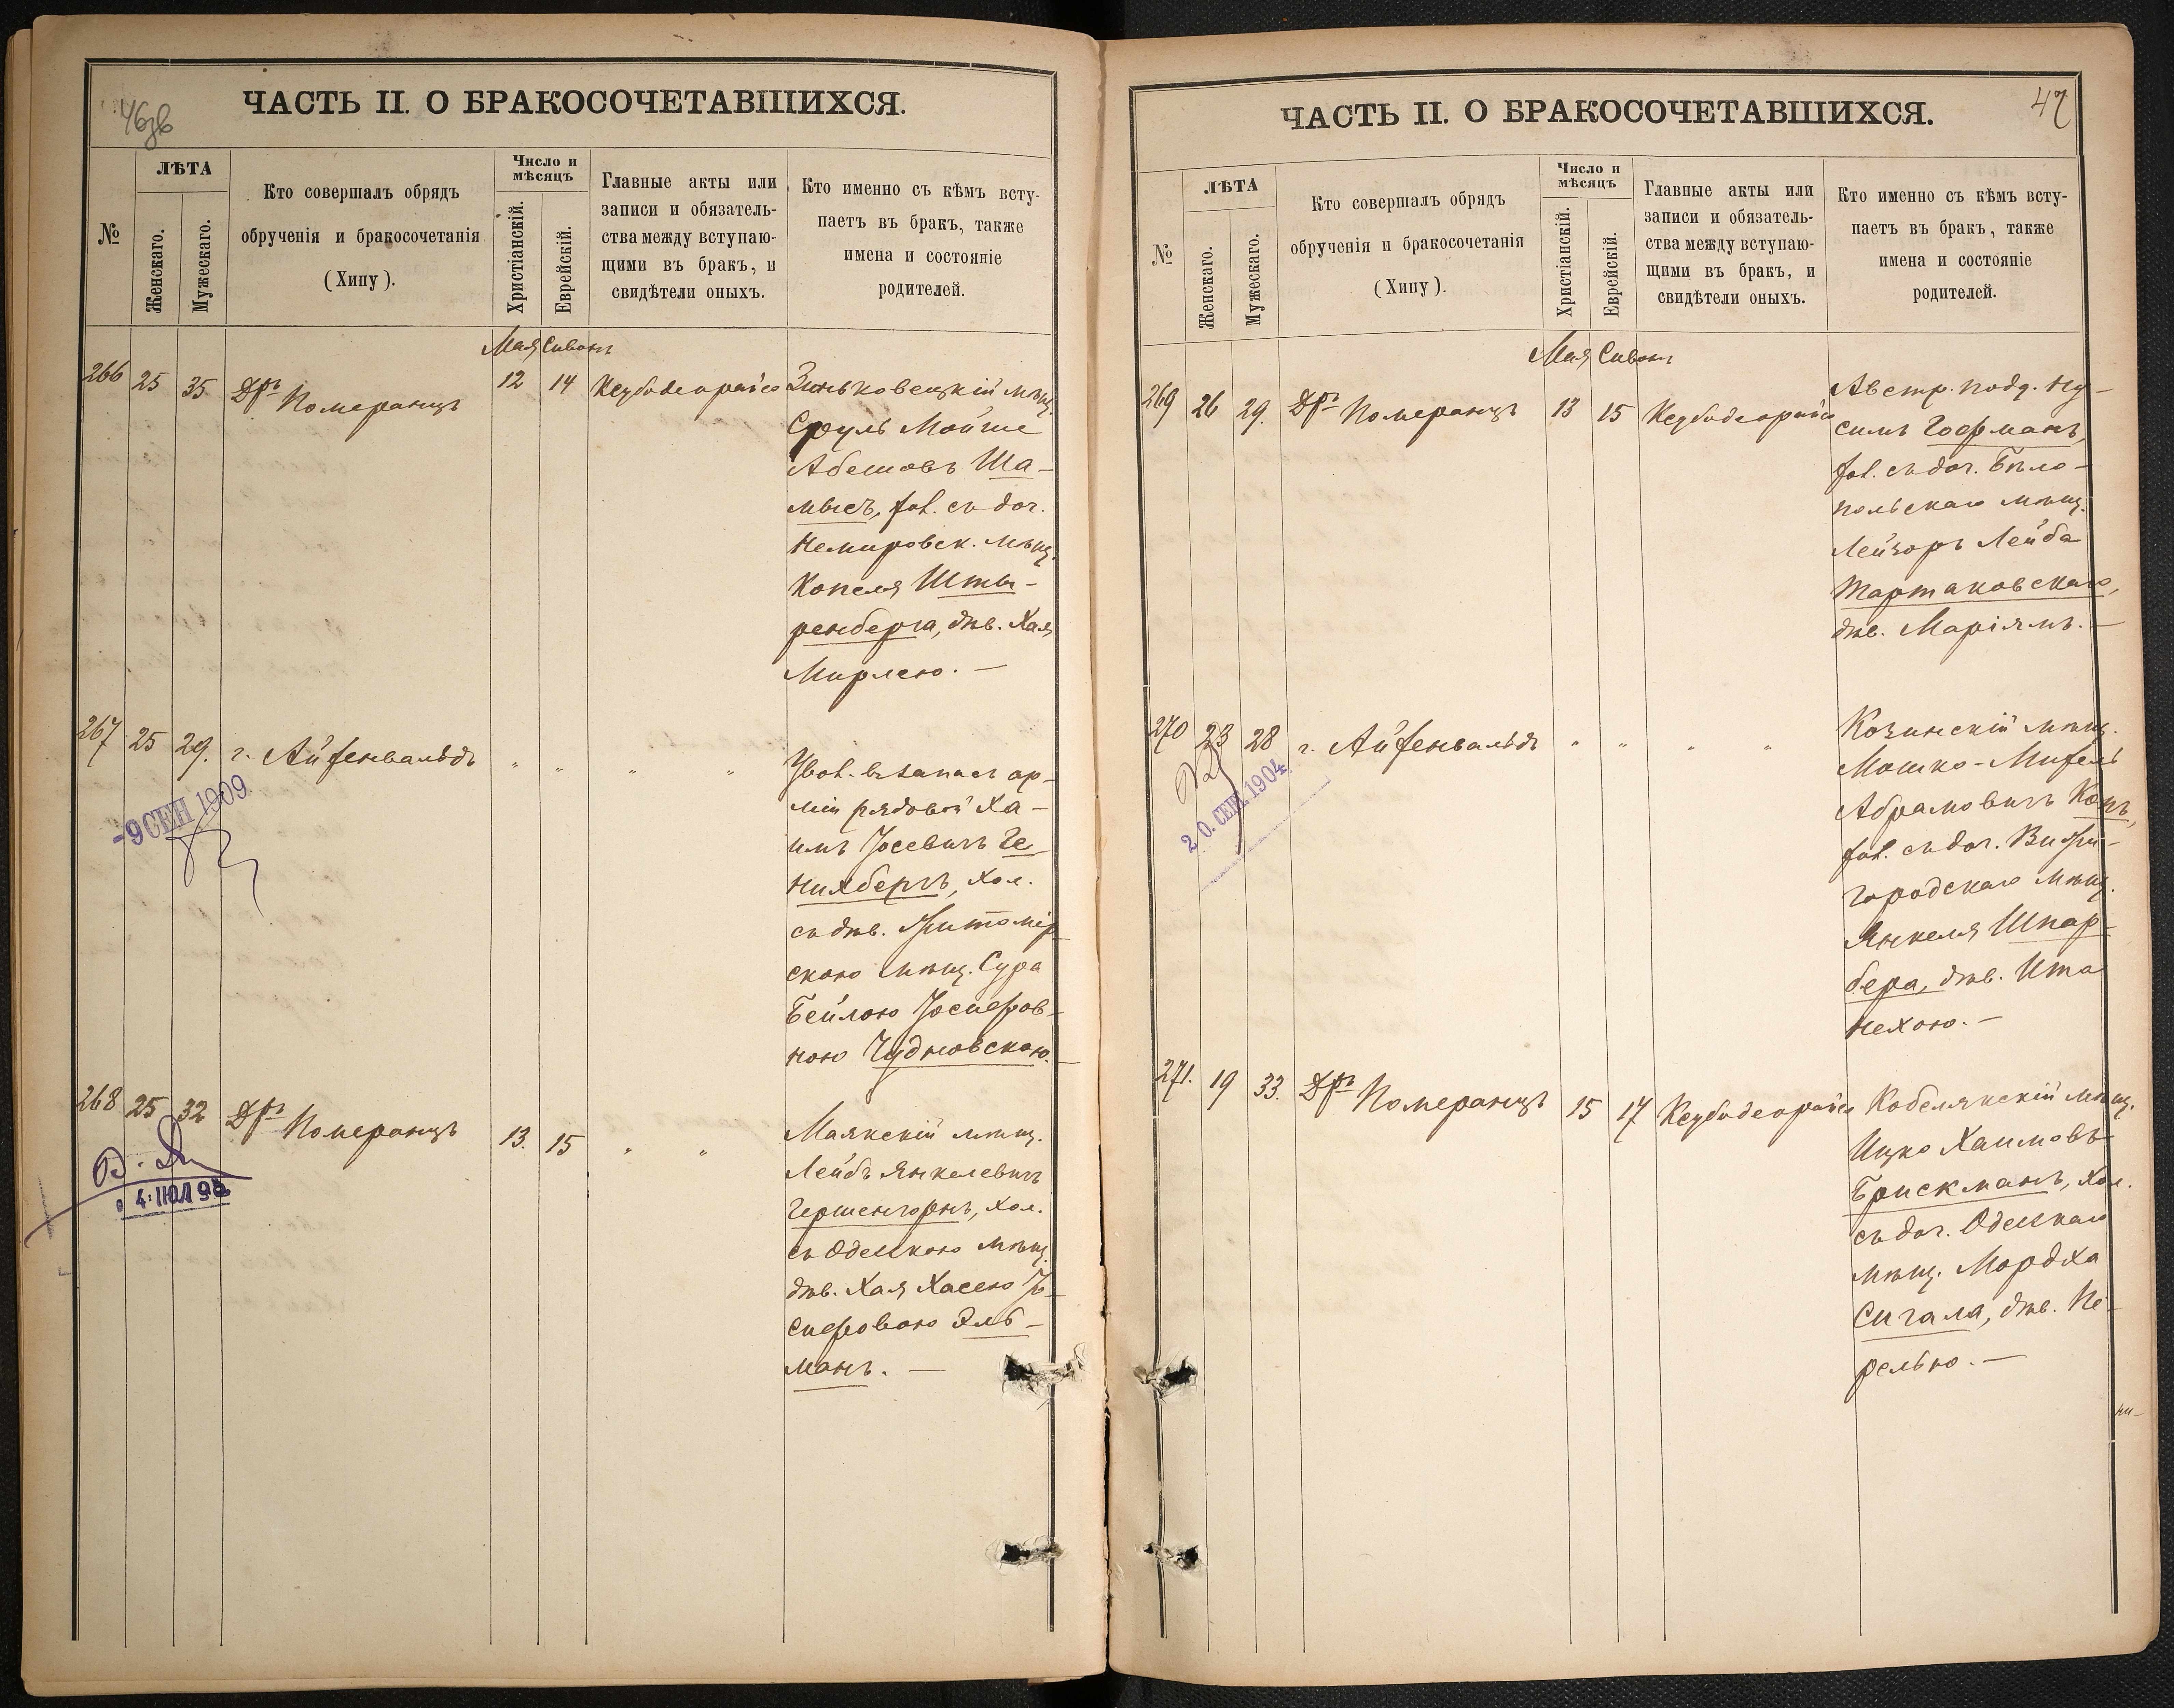 46зв
ЧАСТЬ II. О БРАКОСОЧЕТАВШИХСЯ.
№
ЛѢТА
Женскаго.
Мужескаго.
Кто совершалъ обрядъ
обрученія и бракосочетанія
(Хипу).
Число и
мѣсяцъ
Христіанскій.
Еврейскій.
Главные акты или
записи и обязатель-
ства между вступаю-
щими въ бракъ, и
свидѣтели оныхъ.
Кто именно съ кѣмъ всту-
паетъ въ бракъ, также
имена и состояніе
родителей.
Мая Сивонъ
266 25 35 Дръ Померанцъ 12 14 Кеубидеорайсо Зиньковецкій мѣщ.
Сруль Мойше
Абешовъ Ша-
мысъ, хол. съ доч.
Немировск. мѣщ.
Копеля Шты-
ренберга, дѣв. Хая
Мирлею. —
267 25 29. г. Айзенвальдъ " " " " Увол. въ запасъ ар-
міи рядовой Ха-
имъ Іосевичъ Ге-
нихбергъ, хол.
съ дѣв. Житомір-
скою мѣщ. Сура
Бейлою Іосифов-
ною Чудновскою. —
-9 СЕН 1909
268 25 32 Дръ Померанцъ 13. 15 " " Маякскій мѣщ.
Лейбъ Янкелевичъ
Гершенгорнъ, хол.
съ Одесскою мѣщ.
дѣв. Хая Хасею Іо-
сифовою Эль-
манъ. —
4 ІЮЛ 98
47
ЧАСТЬ II. О БРАКОСОЧЕТАВШИХСЯ.
№
ЛѢТА
Женскаго.
Мужескаго.
Кто совершалъ обрядъ
обрученія и бракосочетанія
(Хипу).
Число и
мѣсяцъ
Христіанскій.
Еврейскій.
Главные акты или
записи и обязатель-
ства между вступаю-
щими въ бракъ, и
свидѣтели оныхъ.
Кто именно съ кѣмъ всту-
паетъ въ бракъ, также
имена и состояніе
родителей.
Мая Сивонъ
269 26 29. Дръ Померанцъ 13 15 Кеубидеорайсо Австр. подд. Ну-
симъ Гофманъ,
хол. съ доч. Бѣло-
польскаго мѣщ.
Лейзоръ Лейба
Тартаковскаго,
дѣв. Маріямъ. —
270 23 28 г. Айзенвальдъ " " " " Козинскій мѣщ.
Мошко-Михель
Абрамовичъ Конъ,
хол. съ доч. Вижни-
городскаго мѣщ.
Янкеля Шпар-
бера, дѣв. Ита
Нехою. —
20. СЕН. 1904
271. 19 33. Дръ Померанцъ 15 17 Кеубидеорайсо Кобелякскій мѣщ.
Ицко Хаимовъ
Брискманъ, хол.
съ доч. Одесскаго
мѣщ. Мордха
Сигала, дѣв. Пе-
релью. —